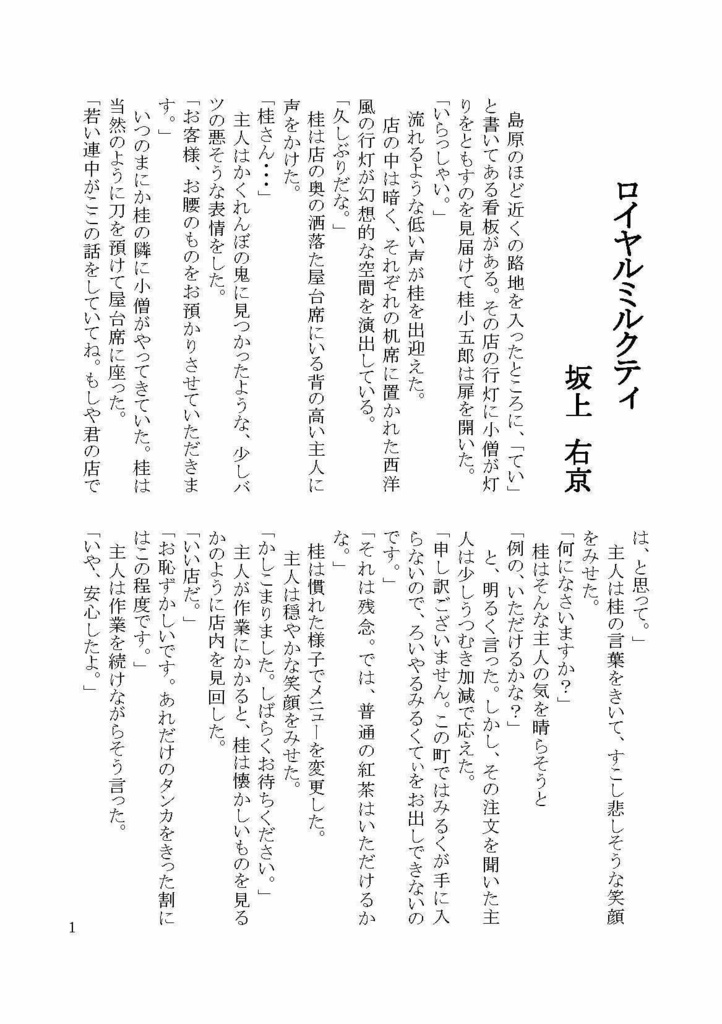 ロイヤルミルクティ
坂上　右京
　島原のほど近くの路地を入ったところに、「てい」
と書いてある看板がある。その店の行灯に小僧が灯
りをともすのを見届けて桂小五郎は扉を開いた。
「いらっしゃい。」
　流れるような低い声が桂を出迎えた。
　店の中は暗く、それぞれの机席に置かれた西洋
風の行灯が幻想的な空間を演出している。
「久しぶりだな。」
　桂は店の奥の洒落た屋台席にいる背の高い主人に
声をかけた。
「桂さん・・・」
　主人はかくれんぼの鬼に見つかったような、少しバ
ツの悪そうな表情をした。
「お客様、お腰のものをお預かりさせていただきま
す。」
　いつのまにか桂の隣に小僧がやってきていた。桂は
当然のように刀を預けて屋台席に座った。
「若い連中がここの話をしていてね。もしや君の店で
は、と思って。」
　主人は桂の言葉をきいて、すこし悲しそうな笑顔
をみせた。
「何になさいますか？」
　桂はそんな主人の気を晴らそうと
「例の、いただけるかな？」
　と、明るく言った。しかし、その注文を聞いた主
人は少しうつむき加減で応えた。
「申し訳ございません。この町ではみるくが手に入
らないので、ろいやるみるくてぃをお出しできないの
です。」
「それは残念。では、普通の紅茶はいただけるか
な。」
　桂は慣れた様子でメニューを変更した。
　主人は穏やかな笑顔をみせた。
「かしこまりました。しばらくお待ちください。」
　主人が作業にかかると、桂は懐かしいものを見る
かのように店内を見回した。
「いい店だ。」
「お恥ずかしいです。あれだけのタンカをきった割に
はこの程度です。」
　主人は作業を続けながらそう言った。
「いや、安心したよ。」
1